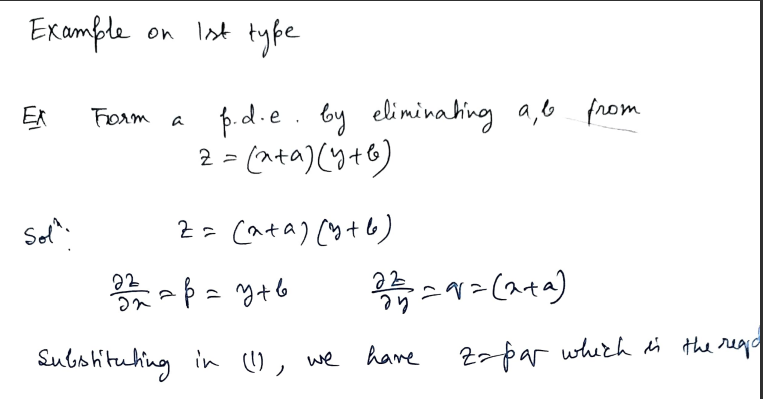 Example on 1st type
Ex Form a p.d.e. by eliminating a, b from
z = (x+a)(y+b)
Solⁿ: z = (x+a)(y+b)
∂z/∂x = p = y+b ∂z/∂y = q = (x+a)
Substituting in (1), we have z=pq which is the reqd